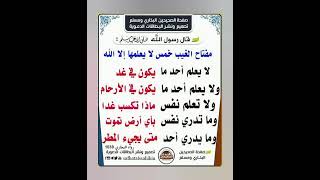 صفحة الصحيحين البخاري ومسلم
تصميم ونشر البطاقات الدعوية
قال رسول الله ﷺ
مفتاح الغيب خمس لا يعلمها إلا الله
لا يعلم أحد ما يكون في غد
ولا يعلم أحد ما يكون في الأرحام
ولا تعلم نفس ماذا تكسب غدا
وما تدري نفس بأي أرض تموت
وما يدري أحد متى يجيء المطر
رواه البخاري 1039
صفحة الصحيحين
البخاري ومسلم
تصميم ونشر
البطاقات الدعوية